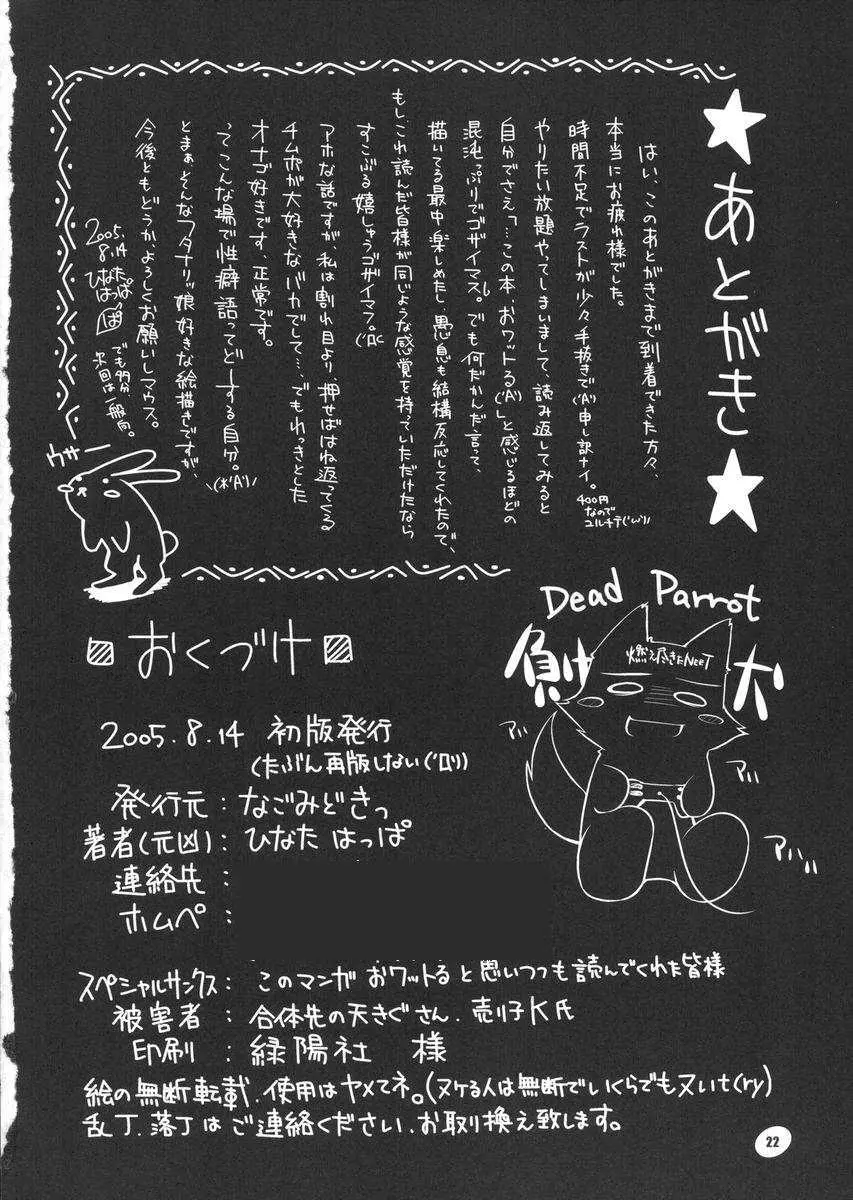 ★あとがき★
はい、このあとがきまで到着できた方々、
本当にお疲れ様でした。
時間不足でラストが少々手抜きで('A`)申し訳ナイ。
400円
なので
ユルチテ('ω`)
やりたい放題やってしまいまして、読み返してみると
自分でさえ「…この本、おワットる('A`)」と感じるほどの
混沌っぷりでゴザイマス。でも何だかんだ言って、
描いてる最中楽しめたし愚息も結構反応してくれたので、
もしこれ読んだ皆様が同じような感覚を持っていただけたなら
すこぶる嬉しゅうゴザイマフ。
アホな話ですが、私は割れ目より、押せばはね返ってくる
チムポが大好きなバカでして…、でもれっきとした
オナゴ好きです、正常です。
ってこんな場で性癖語ってどーする自分。
とまぁそんなフタナリッ娘好きな絵描きですが、
今後ともどうか、よろしくお願いしマウス。
2005.
8.14
ひなた
はっぱ
ぱ
でも多分
次回は一般向。
ウサー
Dead Parrot
負け犬
燃え尽きたNEET
アハ
アハ
アハハ
おくづけ
2005.8.14 初版発行
(たぶん再版しない('ロ`))
発行元:なごみどきっ
著者(元凶):ひなた はっぱ
連絡先:
ホムペ:
スペシャルサンクス:このマンガ おワットると思いつつも読んでくれた皆様
被害者:合体先の天きぐさん.売り子K氏
印刷:緑陽社 様
絵の無断転載.使用はヤメてネ。(ヌケる人は無断でいくらでもヌいt(ry)
乱丁.落丁はご連絡ください.お取り換え致します。
22